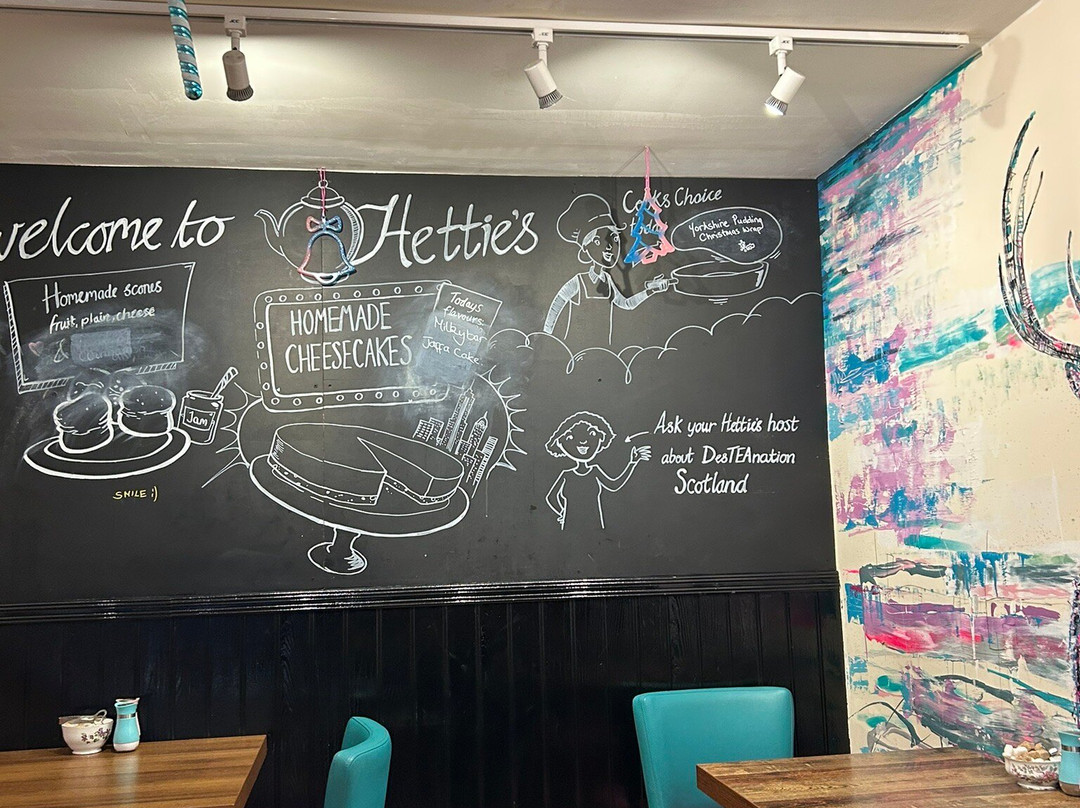 welcome to Hettie's
Homemade scones
fruit, plain, cheese
&
Jam
SMILE :)
HOMEMADE
CHEESECAKES
Todays
flavours:
Milkybar
Jaffa Cake
Cooks Choice
Yorkshire Pudding
Christmas Wrap
Ask your Hettie's host
about DesTEAnation
Scotland